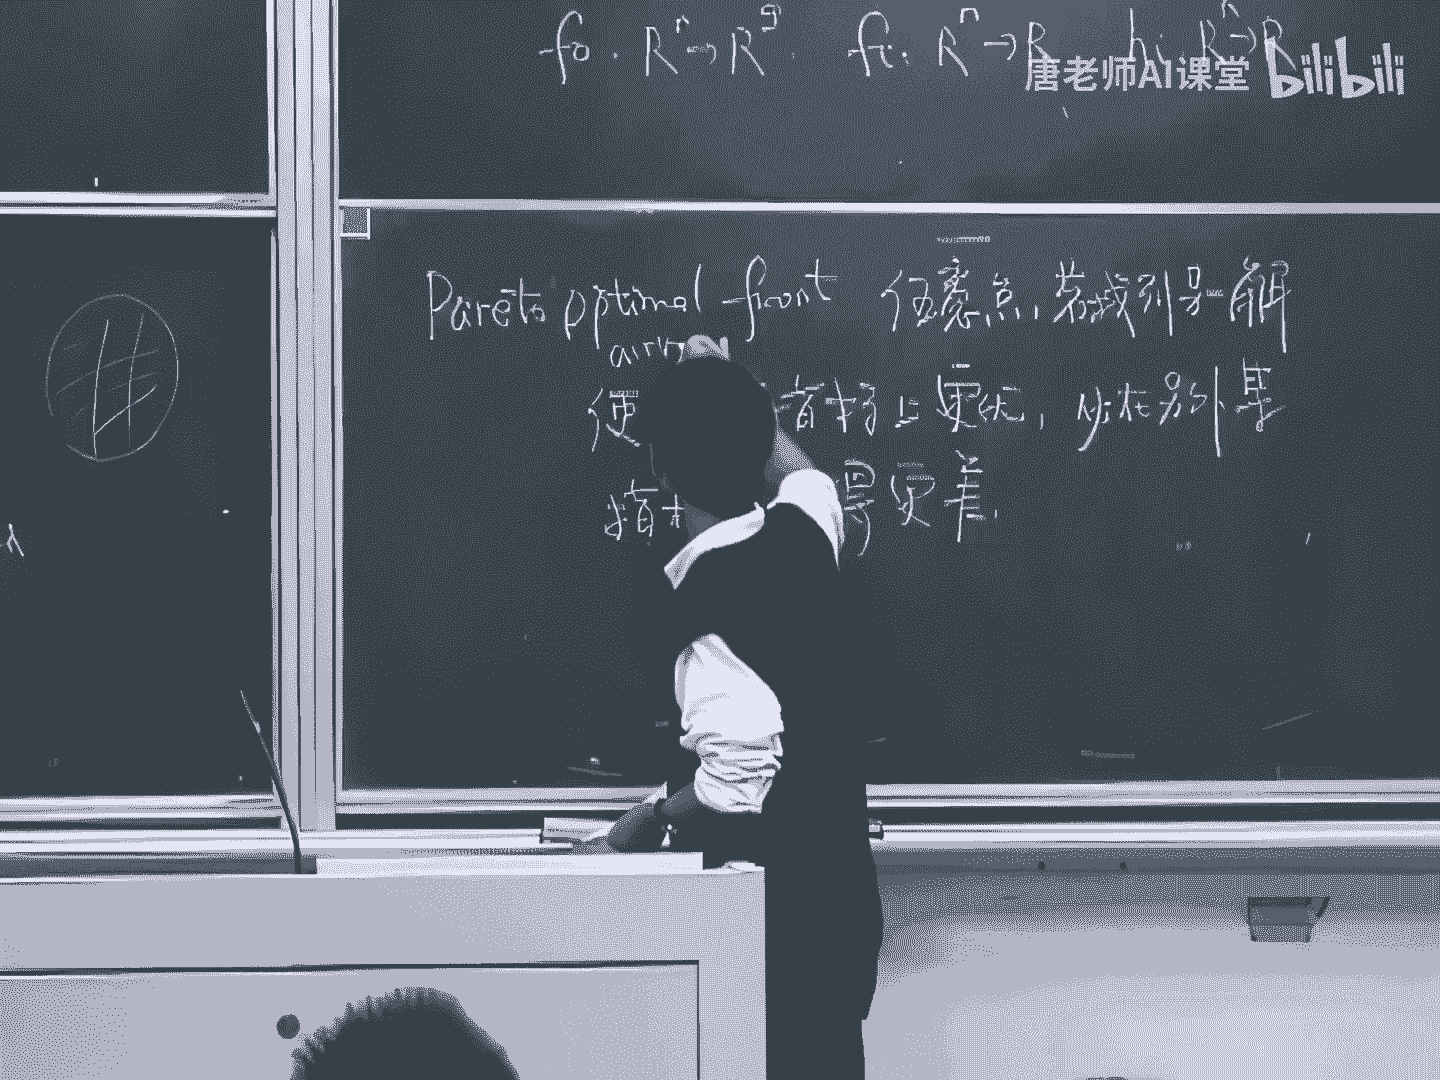 f₀: Rⁿ→R^q. fᵢ: Rⁿ→R hᵢ Rⁿ→R
唐老师AI课堂 bilibili
Pareto optimal front 任意点, 若找到另一解
使 指标上更优, 必在另外某
指标 得更差.
λ